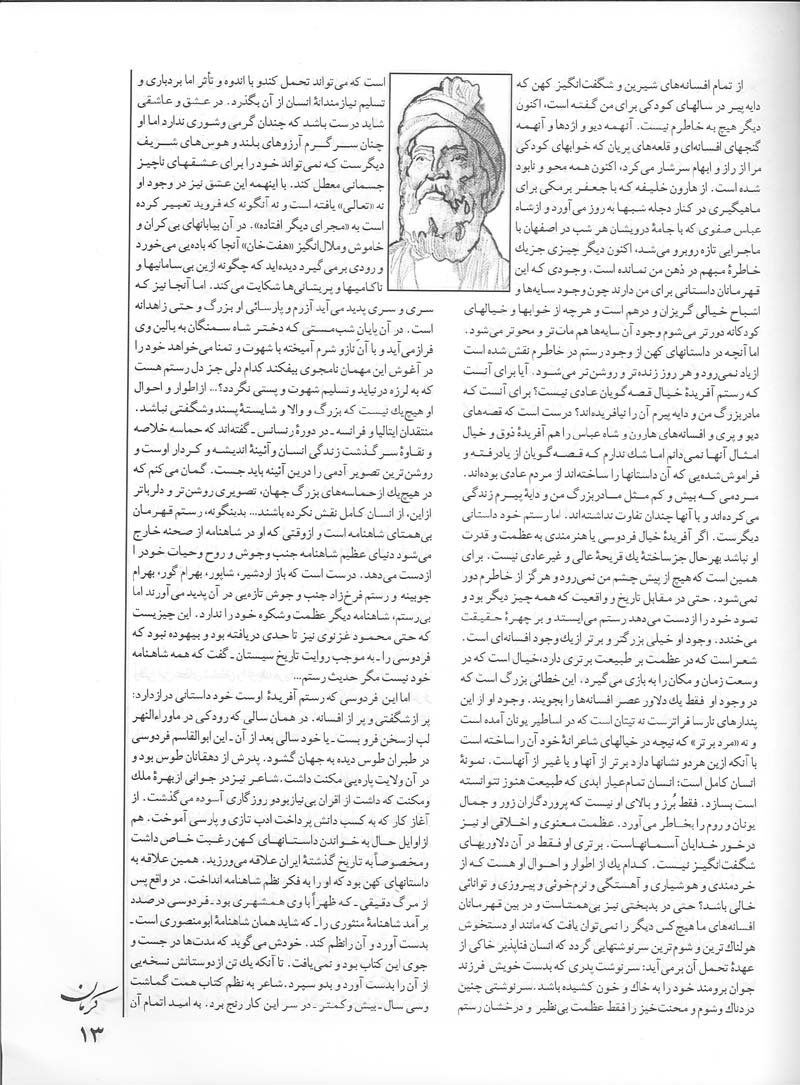 از تمام افسانه‌های شیرین و شگفت‌انگیز کهن که
دایه پیر در سالهای کودکی برای من گفته است، اکنون
دیگر هیچ به خاطرم نیست. آنهمه دیو و اژدها و آنهمه
گنجهای افسانه‌ای و قلعه‌های پریان که خوابهای کودکی
مرا از راز و ابهام سرشار می‌کرد، اکنون همه محو و نابود
شده است. از هارون خلیفه کـه با جـعفـر برمکی برای
ماهیگیری در کنار دجله شبـها به روز می‌آورد و ازشاه
عباس صفوی که با جامهٔ درویشان هر شب در اصفهان با
ماجرایی تازه روبرو می‌شد، اکنون دیگر چیزی جز یك
خاطرهٔ مبهم در ذهن من نمانده است. وجودی که این
قهرمانان داستانی برای من دارند چون وجود سایه‌ها و
اشباح خیالی گریزان و درهم است و هرچه از خوابها و خیالهای
کودکانه دورتر می‌شوم وجود آن سایه‌ها هم مات‌تر و محوتر می‌شود.
اما آنچه در داستانهای کهن از وجود رستم در خاطرم نقش شده است
از یاد نمی‌رود و هر روز زنده‌تر و روشن‌تر می‌شـود. آیا برای آنست
کـه رستم آفریدهٔ خیال قصه‌گویان عادی نیست؟ برای آنست که
مادربزرگ من و دایه پیرم آن را نیافریده‌اند؟ درست است که قصه‌های
دیو و پری و افسانه‌های هارون و شاه عباس را هم آفریدهٔ ذوق و خیال
امثال آنها نمی‌دانم اما شك ندارم کـه قـصه‌گویان از یادرفتـه و
فراموش‌شده‌یی که آن داستانها را ساخته‌اند از مردم عادی بوده‌اند.
مردمی کـه بیش و کم مثل مـادربزرگ من و دایهٔ پیـرم زندگی
می‌کرده‌اند و با آنها چندان تفاوت نداشته‌اند. اما رستم خود داستانی
دیگرست. اگر آفریدهٔ خیال فردوسی یا هنرمندی به عظمت و قدرت
او نباشد بهرحال جز ساختهٔ یك قریحهٔ عالی و غیرعادی نیست. برای
همین است که هیچ از پیش چشم من نمی‌رود و هرگز از خاطرم دور
نمی‌شود. حتی در مقابل تاریخ و واقعیت که همه چیز دیگر بود و
نمود خود را ازدست می‌دهد رستم می‌ایستد و بر چهرهٔ حـقیقت
می‌خندد. وجود او خیلی بزرگتر و برتر ازیك وجود افسانه‌ای است.
شعر است که در عـظمت بر طبیعت برتری دارد، خیال است که در
وسعت زمان و مکان را به بازی می‌گیرد. این خطائی بزرگ است که
در وجود او فقط یك دلاور عصر افسانه‌ها را بجویند. وجود او از این
پندارهای نارسا فراترست نه تیتان است که در اساطیر یونان آمده است
و نه «مرد برتر» که نیچه در خیالهای شاعرانهٔ خود آن را ساخته است
با آنکه ازین هردو نشانها دارد برتر از آنها و یا غیر از آنهاست. نمونهٔ
انسان کامل است: انسان تمام‌عیار ابدی که طبیعت هنوز نتوانسته
است بسازد. فقط بُرز و بالای او نیست که پروردگاران زور و جمال
یونان و روم را بخاطر می‌آورد. عظمت معنوی و اخلاقی او نیـز
درخور خدایان آسـمانهـاست. برتری او فـقط در آن دلاوریهای
شگفت‌انگیز نیسـت. کدام یك از اطوار و احـوال او هست کـه از
خردمندی و هوشیاری و آهستگی و نرم‌خوئی و پیروزی و توانائی
خالی باشد؟ حتی در بدبختی نیز بی‌همتـاست و در بین قهرمانان
افسانه‌های ما هیچ کس دیگر را نمی‌توان یافت که مانند او دستخوش
هولناك‌ترین و شوم‌ترین سرنوشتهایی گردد که انسان فناپذیر خاکی از
عهدهٔ تحمل آن برمی‌آید: سرنوشت پدری که بدست خویش فرزند
جوان برومند خود را به خاك و خون کشیده باشد. سرنوشتی چنین
دردناك و شوم و محنت‌خیز را فقط عظمت بی‌نظیر و درخشان رستم
است که می‌تواند تحمل کند و با اندوه و تأثر اما بردباری و
تسلیم نیازمندانهٔ انسان از آن بگذرد. در عشق و عاشقی
شاید درست باشد که چندان گرمی و شوری ندارد اما او
چنان سـرگـرم آرزوهای بلند و هوس‌های شـریف
دیگرست کـه نمی‌تواند خود را برای عشقهای ناچیز
جسمانی معطل کند. با اینهمه این عشق نیز در وجود او
نه «تعالی» یافته است و نه آنگونه که فروید تعبیر کرده
است به «مجرای دیگر افتاده». در آن بیابانهای بی‌کران و
خاموش و ملال‌انگیز «هفت‌خان» آنجا که باده‌یی می‌خورد
و رودی برمی‌گیرد دیده‌اید که چگونه ازین بی‌سامانیها و
ناکامیها و پریشانی‌ها شکایت می‌کند. اما آنجا نیز که
سـری و سری پدید می‌آید آزرم و پارسائی او بزرگ و حتی زاهدانه
است. در آن پایان شب‌مستی که دختـر شاه سمنگان به بالین وی
فرازمی‌آید و با آن ناز و شرم آمیخته با شهوت و تمنا می‌خواهد خود را
در آغوش این مهمان نامجوی بیفکند کدام دلی جز دل رستم هست
که به لرزه درنیاید و تسلیم شهوت و پستی نگردد؟... ازاطوار و احوال
او هیچ‌یك نیست که بزرگ و والا و شایستهٔ پسند و شگفتی نباشد.
منتقدان ایتالیا و فرانسه ـ در دورهٔ رنسانس ـ گفته‌اند که حماسه خلاصه
و نقاوهٔ سرگذشت زندگی انسان و آئینهٔ اندیشه و کردار اوست و
روشن‌ترین تصویر آدمی را درین آئینه باید جست. گمان می‌کنم که
در هیچ‌یك از حماسه‌های بزرگ جهان، تصویری روشن‌تر و دلرباتر
ازاین، از انسان کامل نقش نکرده باشند... بدینگونه، رستم قهرمان
بی‌همتای شاهنامه است و ازوقتی که او در شاهنامه از صحنه خارج
می‌شود دنیای عظیم شاهنامه جنب وجوش و روح وحیات خود را
ازدست می‌دهد. درست است که باز اردشیر، شاپور، بهرام گور، بهرام
چوبینه و رستم فرخ‌زاد جنب و جوش تازه‌یی در آن پدید می‌آورند اما
بی‌رستم، شاهنامه دیگر عظمت وشکوه خود را ندارد. این چیزیست
که حتی محمود غزنوی نیز تا حدی دریافته بود و بیهوده نبود که
فردوسی را ـ به موجب روایت تاریخ سیستان ـ گفت که همه شاهنامه
خود نیست مگر حدیث رستم...
اما این فردوسی که رستم آفریدهٔ اوست خود داستانی درازدارد:
پر ازشگفتی و پر از افسانه. در همان سالی که رودکی در ماوراءالنهر
لب ازسخن فرو بسـت ـ یا خود سالی بعد از آن ـ این ابوالقاسم فردوسی
در طبران طوس دیده به جهان گشود. پدرش از دهقانان طوس بود و
در آن ولایت پاره‌یی مکنت داشت. شاعر نیز در جوانی از بهرهٔ ملك
ومکنت که داشت از اقران بی‌نیازبود و روزگاری آسوده می‌گذشت. از
آغاز کار که به کسب دانش پرداخت ادب تازی و پارسی آموخت. هم
ازاوایل حـال به خـواندن داستـانهـای کـهن رغـبت خـاص داشت
ومخصوصاً به تاریخ گذشتهٔ ایران علاقه می‌ورزید. همین علاقه به
داستانهای کهن بود که او را به فکر نظم شاهنامه انداخت. در واقع پس
از مرگ دقیقی ـ که ظهراً با وی همشهری بود ـ فردوسی درصدد
برآمد شاهنامهٔ منثوری را ـ که شاید همان شاهنامهٔ ابومنصوری است ـ
بدست آورد و آن رانظم کند. خودش می‌گوید که مدت‌ها در جست و
جوی این کتاب بود و نمی‌یافت. تا آنکه یك تن ازدوستانش نسخه‌یی
از آن را بدست آورد و بدو سپرد. شاعر به نظم کتاب همت گماشت
وسی سال ـ بیش وکمتر ـ در سر این کار رنج برد. به امید اتمام آن
کرمان
۱۳